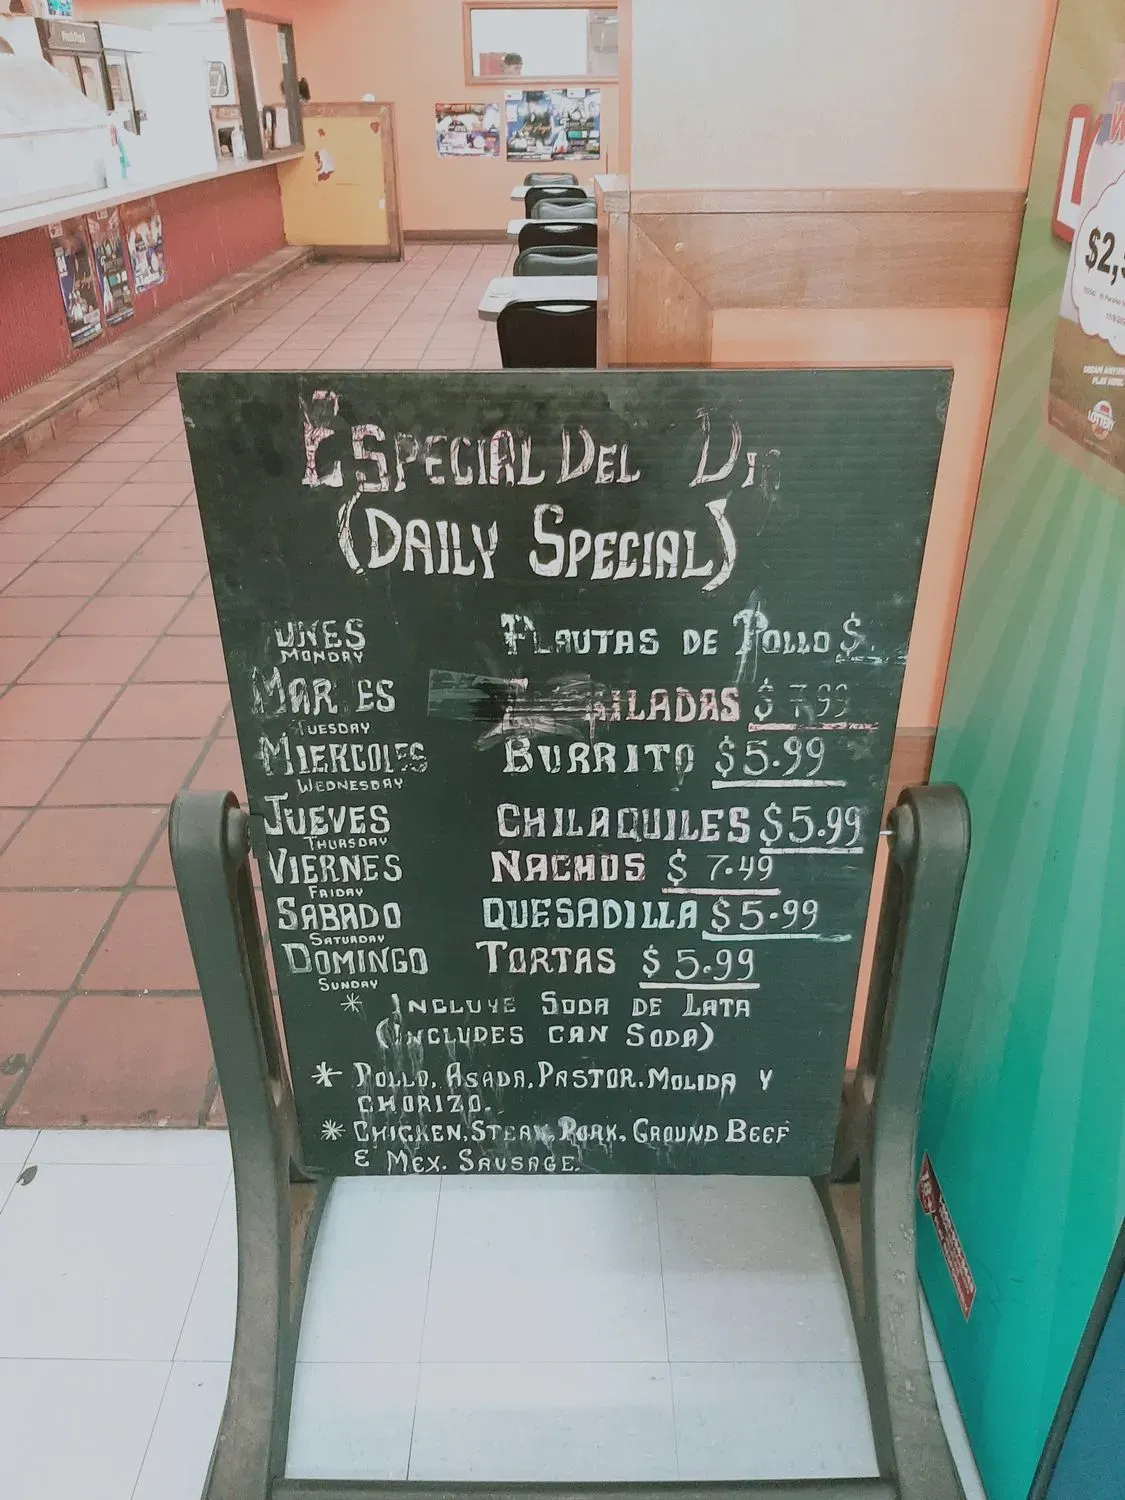 ESPECIAL DEL
(DAILY SPECIAL)
UNES FLAUTAS DE POLLO $
MONDAY
MAR ES ILADAS $ 7.99
TUESDAY
MIERCOLES BURRITO $5.99
WEDNESDAY
JUEVES CHILAQUILES $5.99
THURSDAY
VIERNES NACHOS $ 7.49
FRIDAY
SABADO QUESADILLA $5.99
SATURDAY
DOMINGO TORTAS $ 5.99
SUNDAY
* INCLUYE SODA DE LATA
(INCLUDES CAN SODA)
* POLLO, ASADA, PASTOR. MOLIDA Y
CHORIZO.
* CHICKEN, STEAK, PORK, GROUND BEEF
& MEX. SAUSAGE.
$2,
LOTTERY